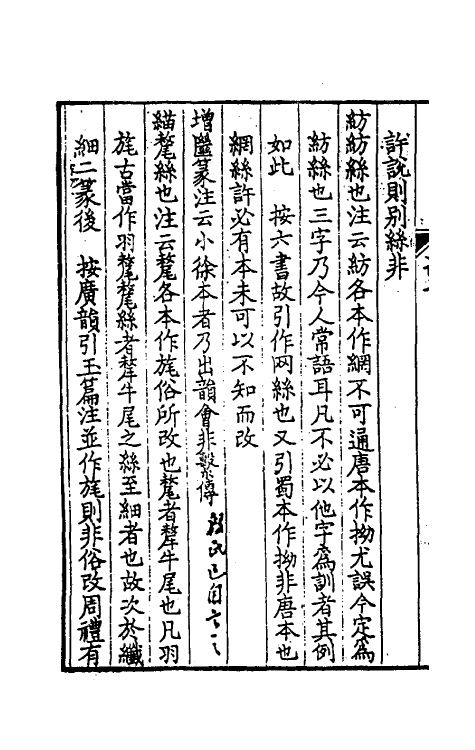 許說則別絲非
紡紡絲也注云紡各本作網不可通唐本作拗尤誤今定爲
紡絲也三字乃今人常語耳凡不必以他字爲訓者其例
如此　按六書故引作网絲也又引蜀本作拗非唐本也
網絲許必有本未可以不知而改
增䍤篆注云小徐本者乃出韻會非繫傳 段氏已自言之
緢氂絲也注云氂各本作旄俗所改也氂者犛牛尾也凡羽
旄古當作羽氂氂絲者犛牛尾之絲至細者也故次於纖
細二篆後　按廣韻引玉篇注並作旄則非俗改周禮有